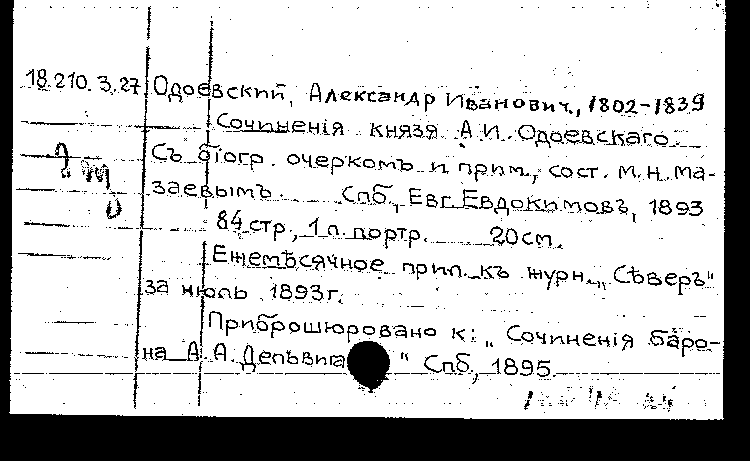 18.210.3.27 Одоевский, Александр Иванович, 1802-1839
Сочиненія князя А.И. Одоевскаго.
Съ біогр. очеркомъ и прим., сост. М.Н. Ма-
заевымъ. Спб., Евг. Евдокимовъ, 1893
84 стр., 1 л. портр. 20 см.
Ежемѣсячное прил. къ журн. „Сѣверъ"
за июль 1893г.
Приброшюровано к: „Сочиненія баро-
на А.А. Дельвига" Спб., 1895.